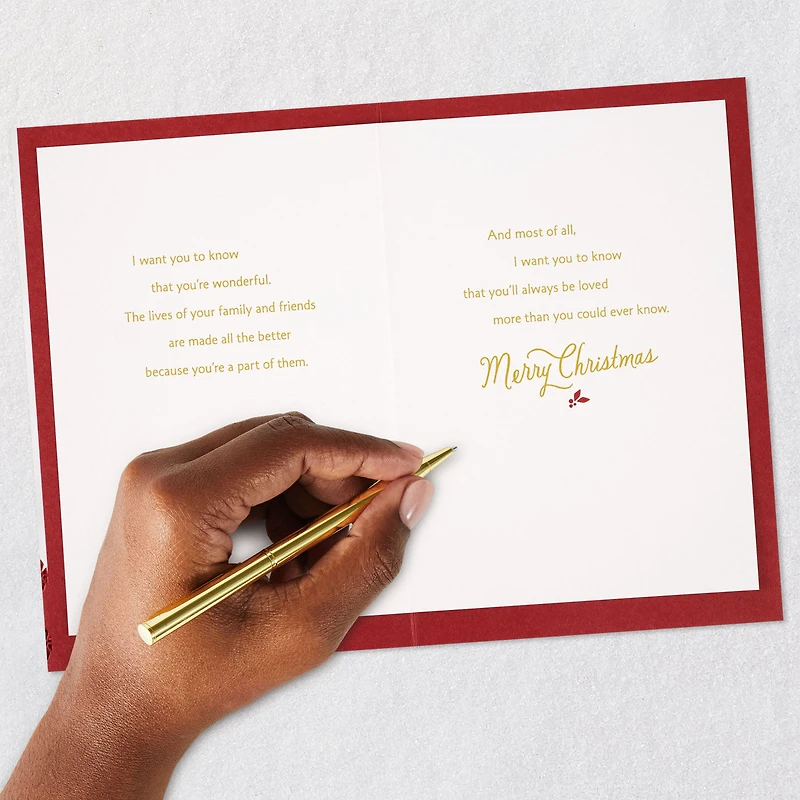 I want you to know
that you're wonderful.
The lives of your family and friends
are made all the better
because you're a part of them.
And most of all,
I want you to know
that you'll always be loved
more than you could ever know.
Merry Christmas